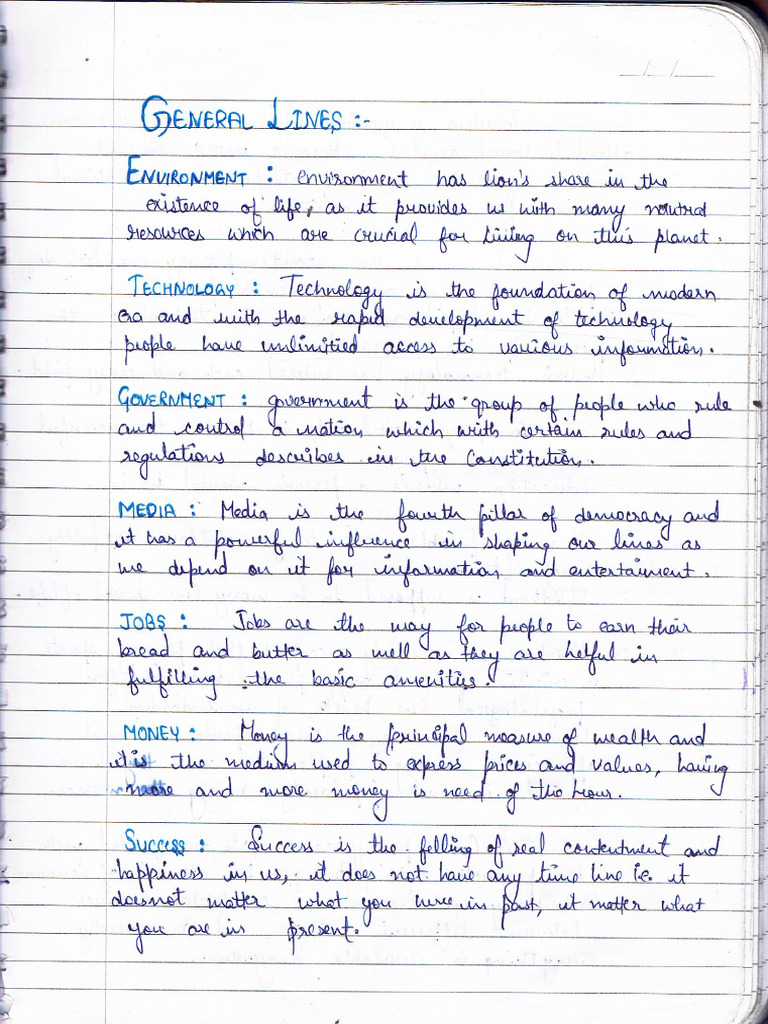 GENERAL LINES :-
ENVIRONMENT : environment has lion's share in the
existence of life, as it provides us with many natural
resources which are crucial for living on this planet.
TECHNOLOGY : Technology is the foundation of modern
era and with the rapid development of technology
people have unlimitied access to various information.
GOVERNMENT : government is the group of people who rule
and control a nation which with certain rules and
regulations describes in the Constitution.
MEDIA : Media is the fourth pillar of democracy and
it has a powerful influence in shaping our lines as
we depend on it for information and entertaiment.
JOBS : Jobs are the way for people to earn their
bread and butter as well as they are helful in
fulfilling the basic amenities.
MONEY : Money is the principal measure of wealth and
it is the medium used to express prices and values, having
more and more money is need of the hour.
SUCCESS : Success is the felling of real contentment and
happiness in us, it does not have any time line i.e. it
doesnot matter what you were in past, it matter what
you are in present.